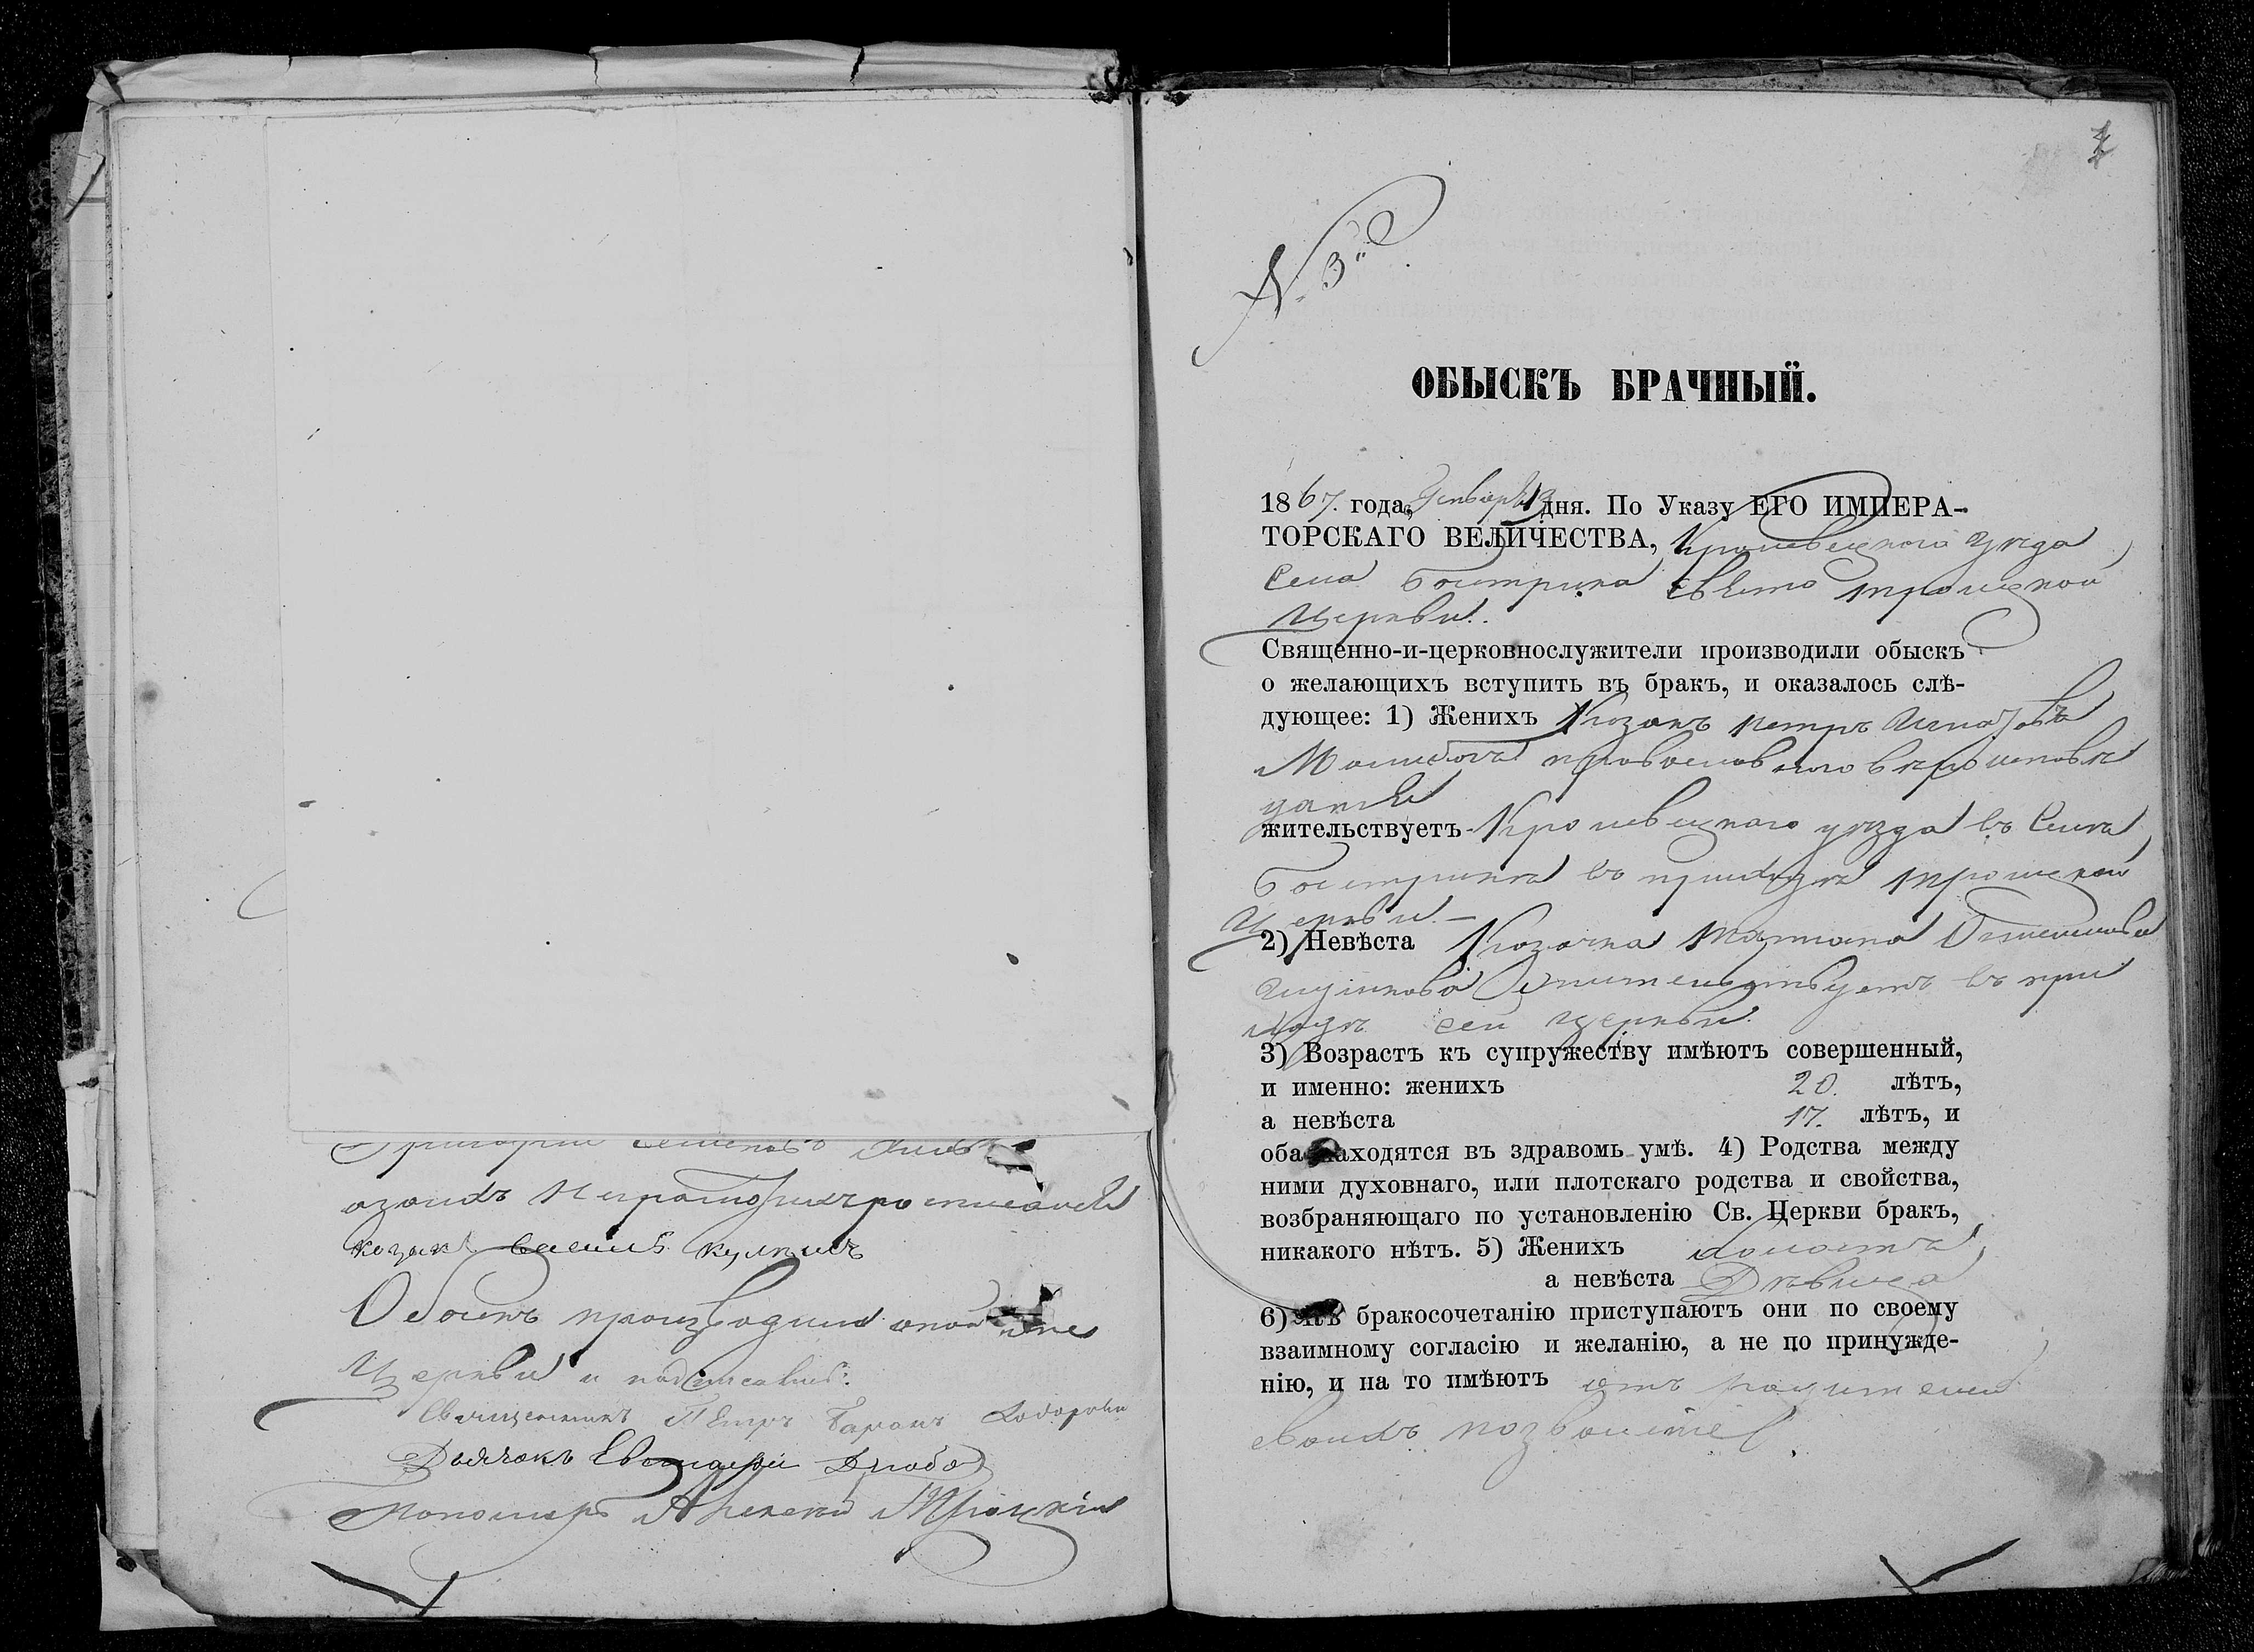 Григорий Семеновъ
козакъ василь кулишъ
Обыскъ производили
Церкви и подписали:
Священникъ Петръ Баранъ
Дьячокъ Евстафій Дзюба
Пономарь Алексѣй Троцкій
7
N. 3й
ОБЫСКЪ БРАЧНЫЙ.
1867. года, Генваря 13 дня. По Указу ЕГО ИМПЕРА-
ТОРСКАГО ВЕЛИЧЕСТВА, Кролевецкого уѣзда
Села Быстрика Свято троицкой
Церкви.
Священно-и-церковнослужители производили обыскъ
о желающихъ вступить въ бракъ, и оказалось слѣ-
дующее: 1) Женихъ Козакъ петръ Игнатовъ
православного вѣроисповѣ
данія
жительствуетъ Кролевецкаго уѣзда въ Селѣ
Быстрикѣ въ приходѣ троицкой
Церкви. —
2) Невѣста Козачка татіана
жительствуетъ въ при
ходѣ сей церкви.
3) Возрастъ къ супружеству имѣютъ совершенный,
и именно: женихъ 20. лѣтъ,
а невѣста 17. лѣтъ, и
оба находятся въ здравомь умѣ. 4) Родства между
ними духовнаго, или плотскаго родства и свойства,
возбраняющаго по установленію Св. Церкви бракъ,
никакого нѣтъ. 5) Женихъ холостъ
а невѣста Дѣвица
6) Къ бракосочетанію приступаютъ они по своему
взаимному согласію и желанію, а не по принужде-
нію, и на то имѣютъ отъ родителей
своихъ позволеніе.